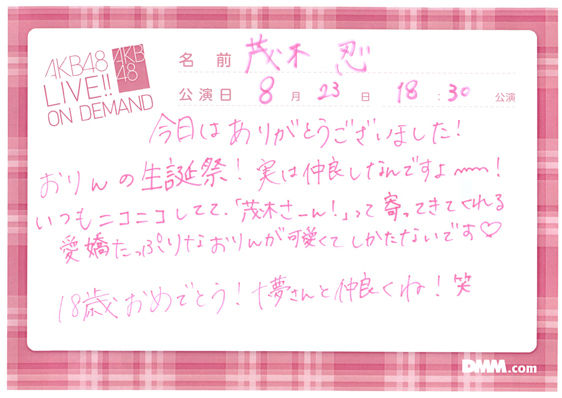 AKB48
LIVE!!
ON DEMAND
AKB
48
名前 茂木 忍
公演日 8月23日 18:30公演
今日はありがとうございました!
おりんの生誕祭!実は仲良しなんですよ〜!
いつもニコニコしてて、「茂木さーん!」って寄ってきてくれる
愛嬌たっぷりなおりんが可愛くてしかたないです♡
18歳おめでとう!十夢さんと仲良くね!笑
DMM.com